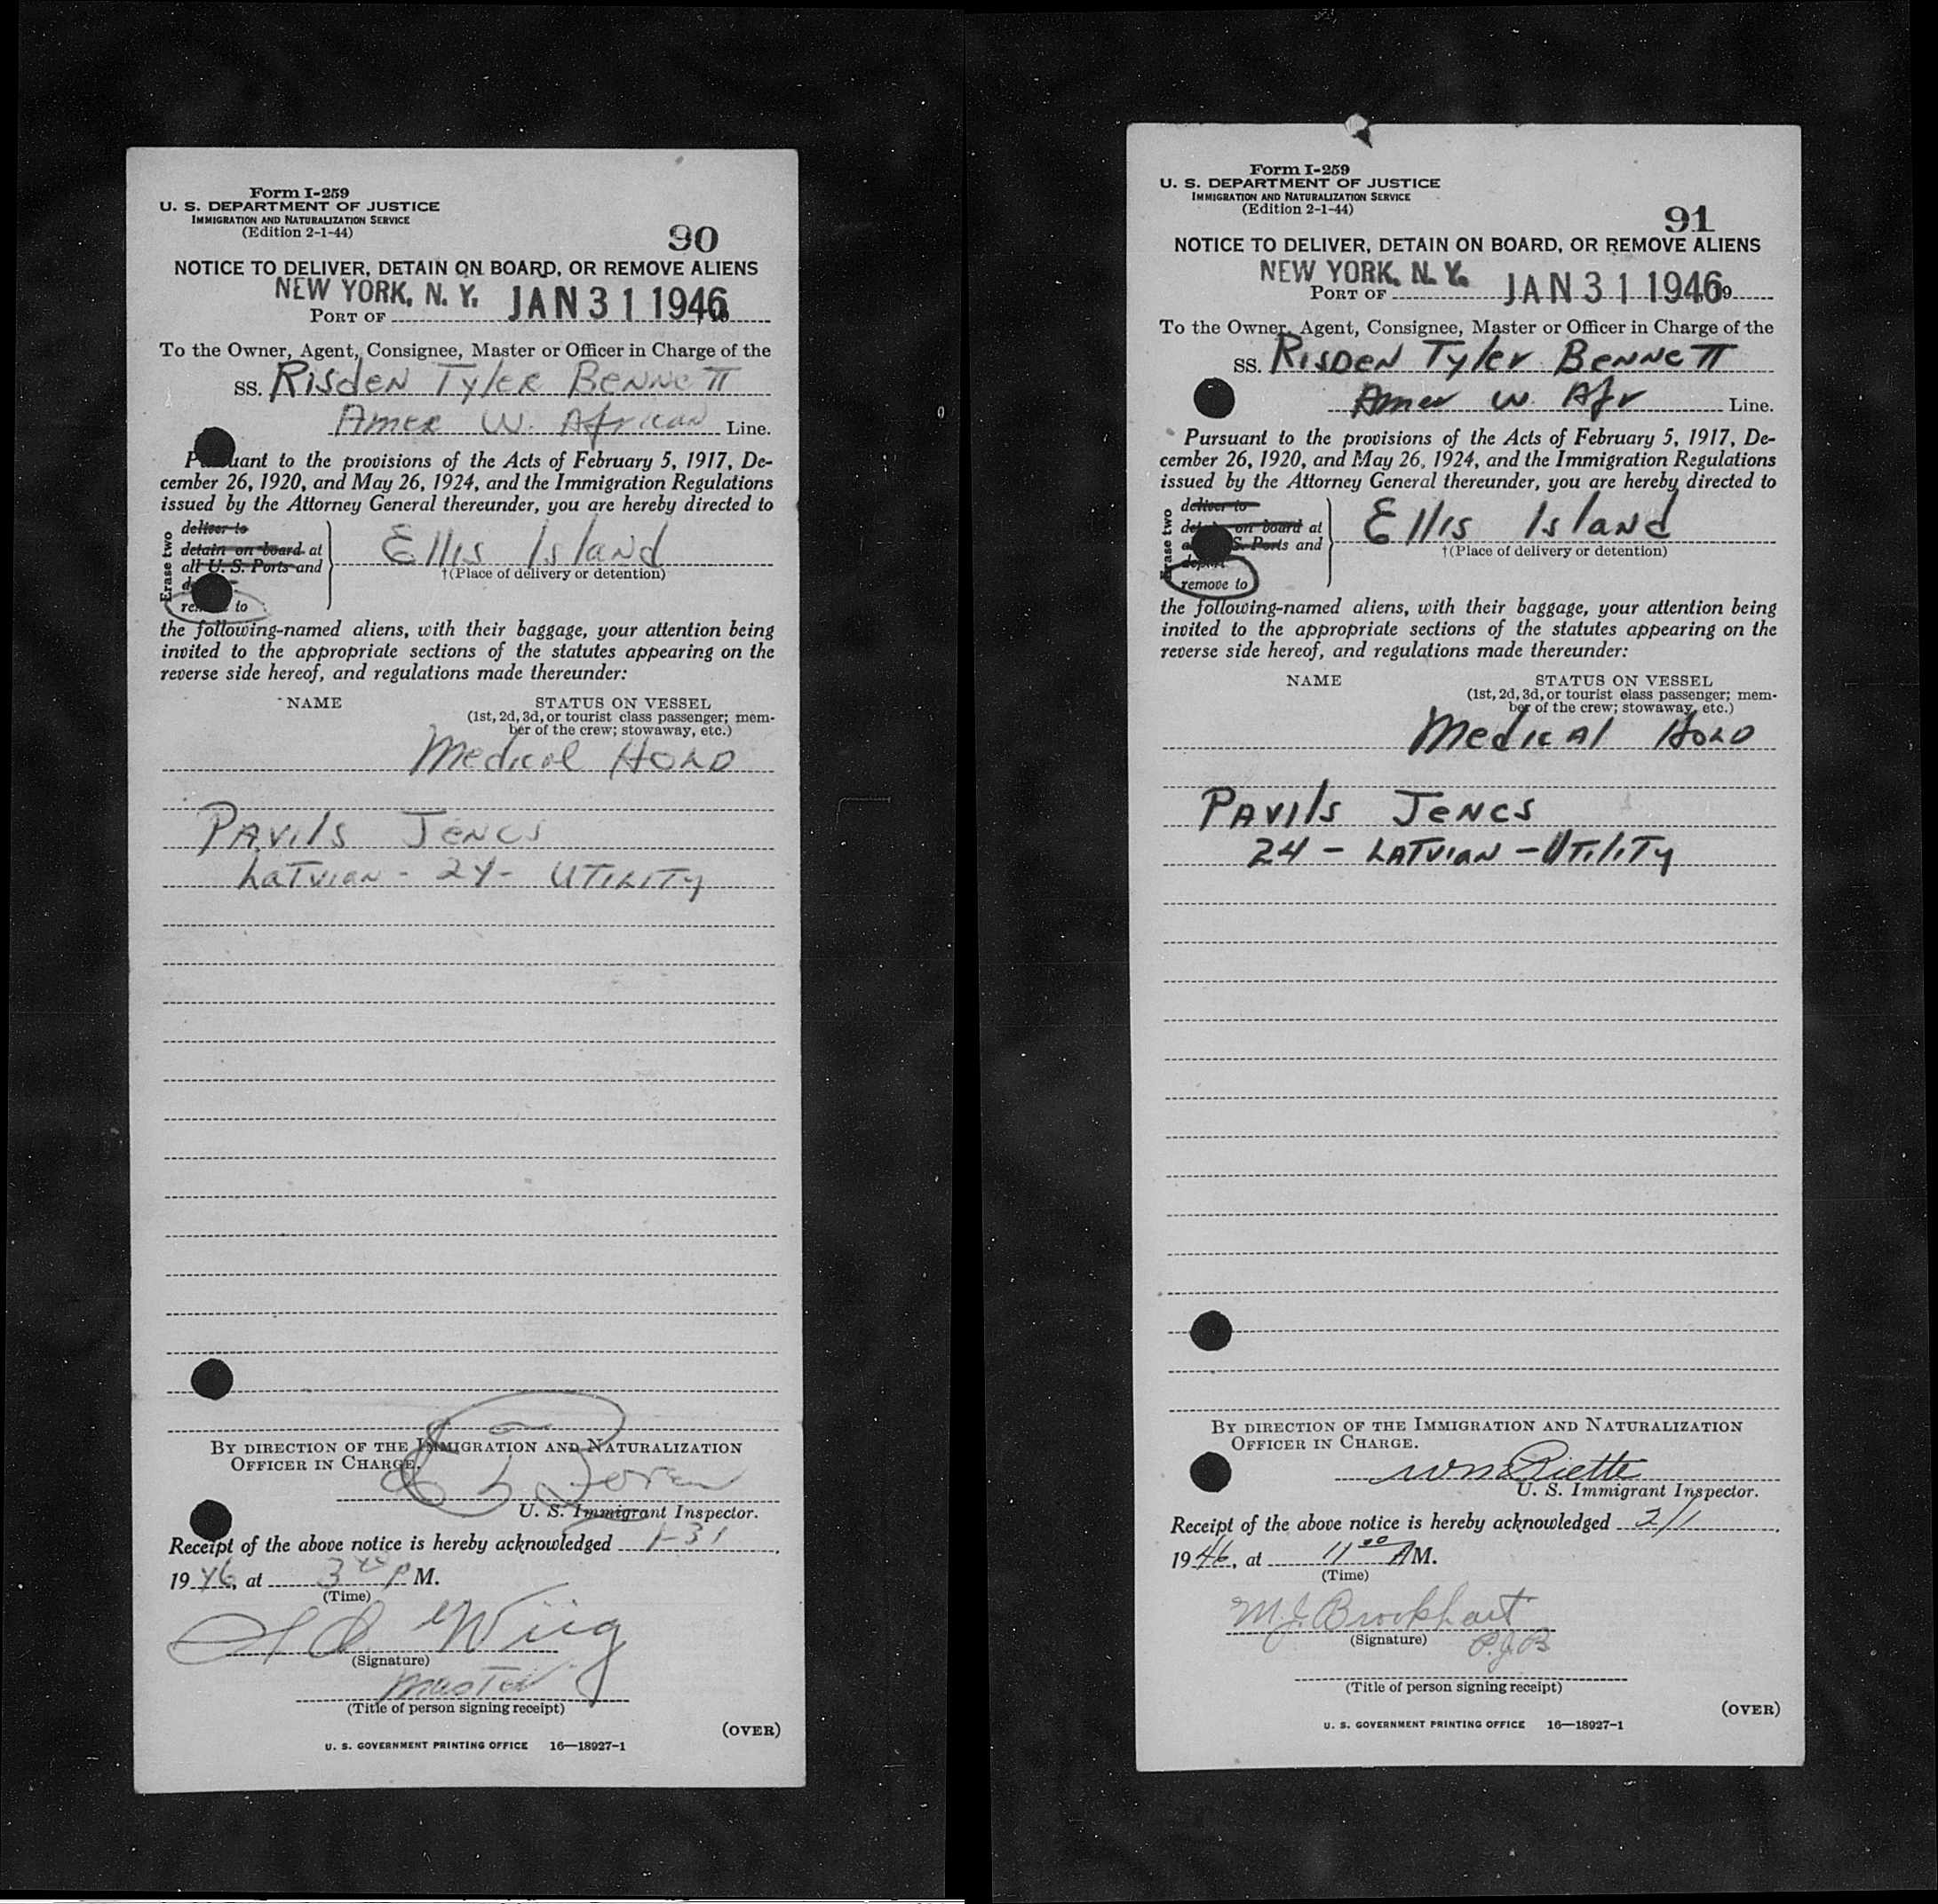 Form I-259
U. S. DEPARTMENT OF JUSTICE
IMMIGRATION AND NATURALIZATION SERVICE
(Edition 2-1-44)
90
NOTICE TO DELIVER, DETAIN ON BOARD, OR REMOVE ALIENS
NEW YORK, N. Y. JAN 31 1946
PORT OF
To the Owner, Agent, Consignee, Master or Officer in Charge of the
SS. Risden Tyler Bennett
Amer W. African Line.
Pursuant to the provisions of the Acts of February 5, 1917, De-
cember 26, 1920, and May 26, 1924, and the Immigration Regulations
issued by the Attorney General thereunder, you are hereby directed to
Erase two
deliver to
detain on board at
all U. S. Ports and
remove to
Ellis Island
†(Place of delivery or detention)
the following-named aliens, with their baggage, your attention being
invited to the appropriate sections of the statutes appearing on the
reverse side hereof, and regulations made thereunder:
NAME STATUS ON VESSEL
(1st, 2d, 3d, or tourist class passenger; mem-
ber of the crew; stowaway, etc.)
Medical Hold
Pavils Jencs
Latvian - 24 - Utility
BY DIRECTION OF THE IMMIGRATION AND NATURALIZATION
OFFICER IN CHARGE.
U. S. Immigrant Inspector.
Receipt of the above notice is hereby acknowledged 1-31,
1946, at 3 P M.
(Time)
Wiig
(Signature)
Master
(Title of person signing receipt)
(OVER)
U. S. GOVERNMENT PRINTING OFFICE 16—18927-1
Form I-259
U. S. DEPARTMENT OF JUSTICE
IMMIGRATION AND NATURALIZATION SERVICE
(Edition 2-1-44)
91
NOTICE TO DELIVER, DETAIN ON BOARD, OR REMOVE ALIENS
NEW YORK, N. Y. JAN 31 1946
PORT OF 19
To the Owner, Agent, Consignee, Master or Officer in Charge of the
SS. Risden Tyler Bennett
Amer W. Afr Line.
Pursuant to the provisions of the Acts of February 5, 1917, De-
cember 26, 1920, and May 26, 1924, and the Immigration Regulations
issued by the Attorney General thereunder, you are hereby directed to
Erase two
deliver to
detain on board at
all U. S. Ports and
deport
remove to
Ellis Island
†(Place of delivery or detention)
the following-named aliens, with their baggage, your attention being
invited to the appropriate sections of the statutes appearing on the
reverse side hereof, and regulations made thereunder:
NAME STATUS ON VESSEL
(1st, 2d, 3d, or tourist class passenger; mem-
ber of the crew; stowaway, etc.)
Medical Hold
Pavils Jencs
24 - Latvian - Utility
BY DIRECTION OF THE IMMIGRATION AND NATURALIZATION
OFFICER IN CHARGE.
U. S. Immigrant Inspector.
Receipt of the above notice is hereby acknowledged 2/1,
1946, at 11 00 A M.
(Time)
M.J. Brookhart
(Signature) P.J.B
(Title of person signing receipt)
(OVER)
U. S. GOVERNMENT PRINTING OFFICE 16—18927-1